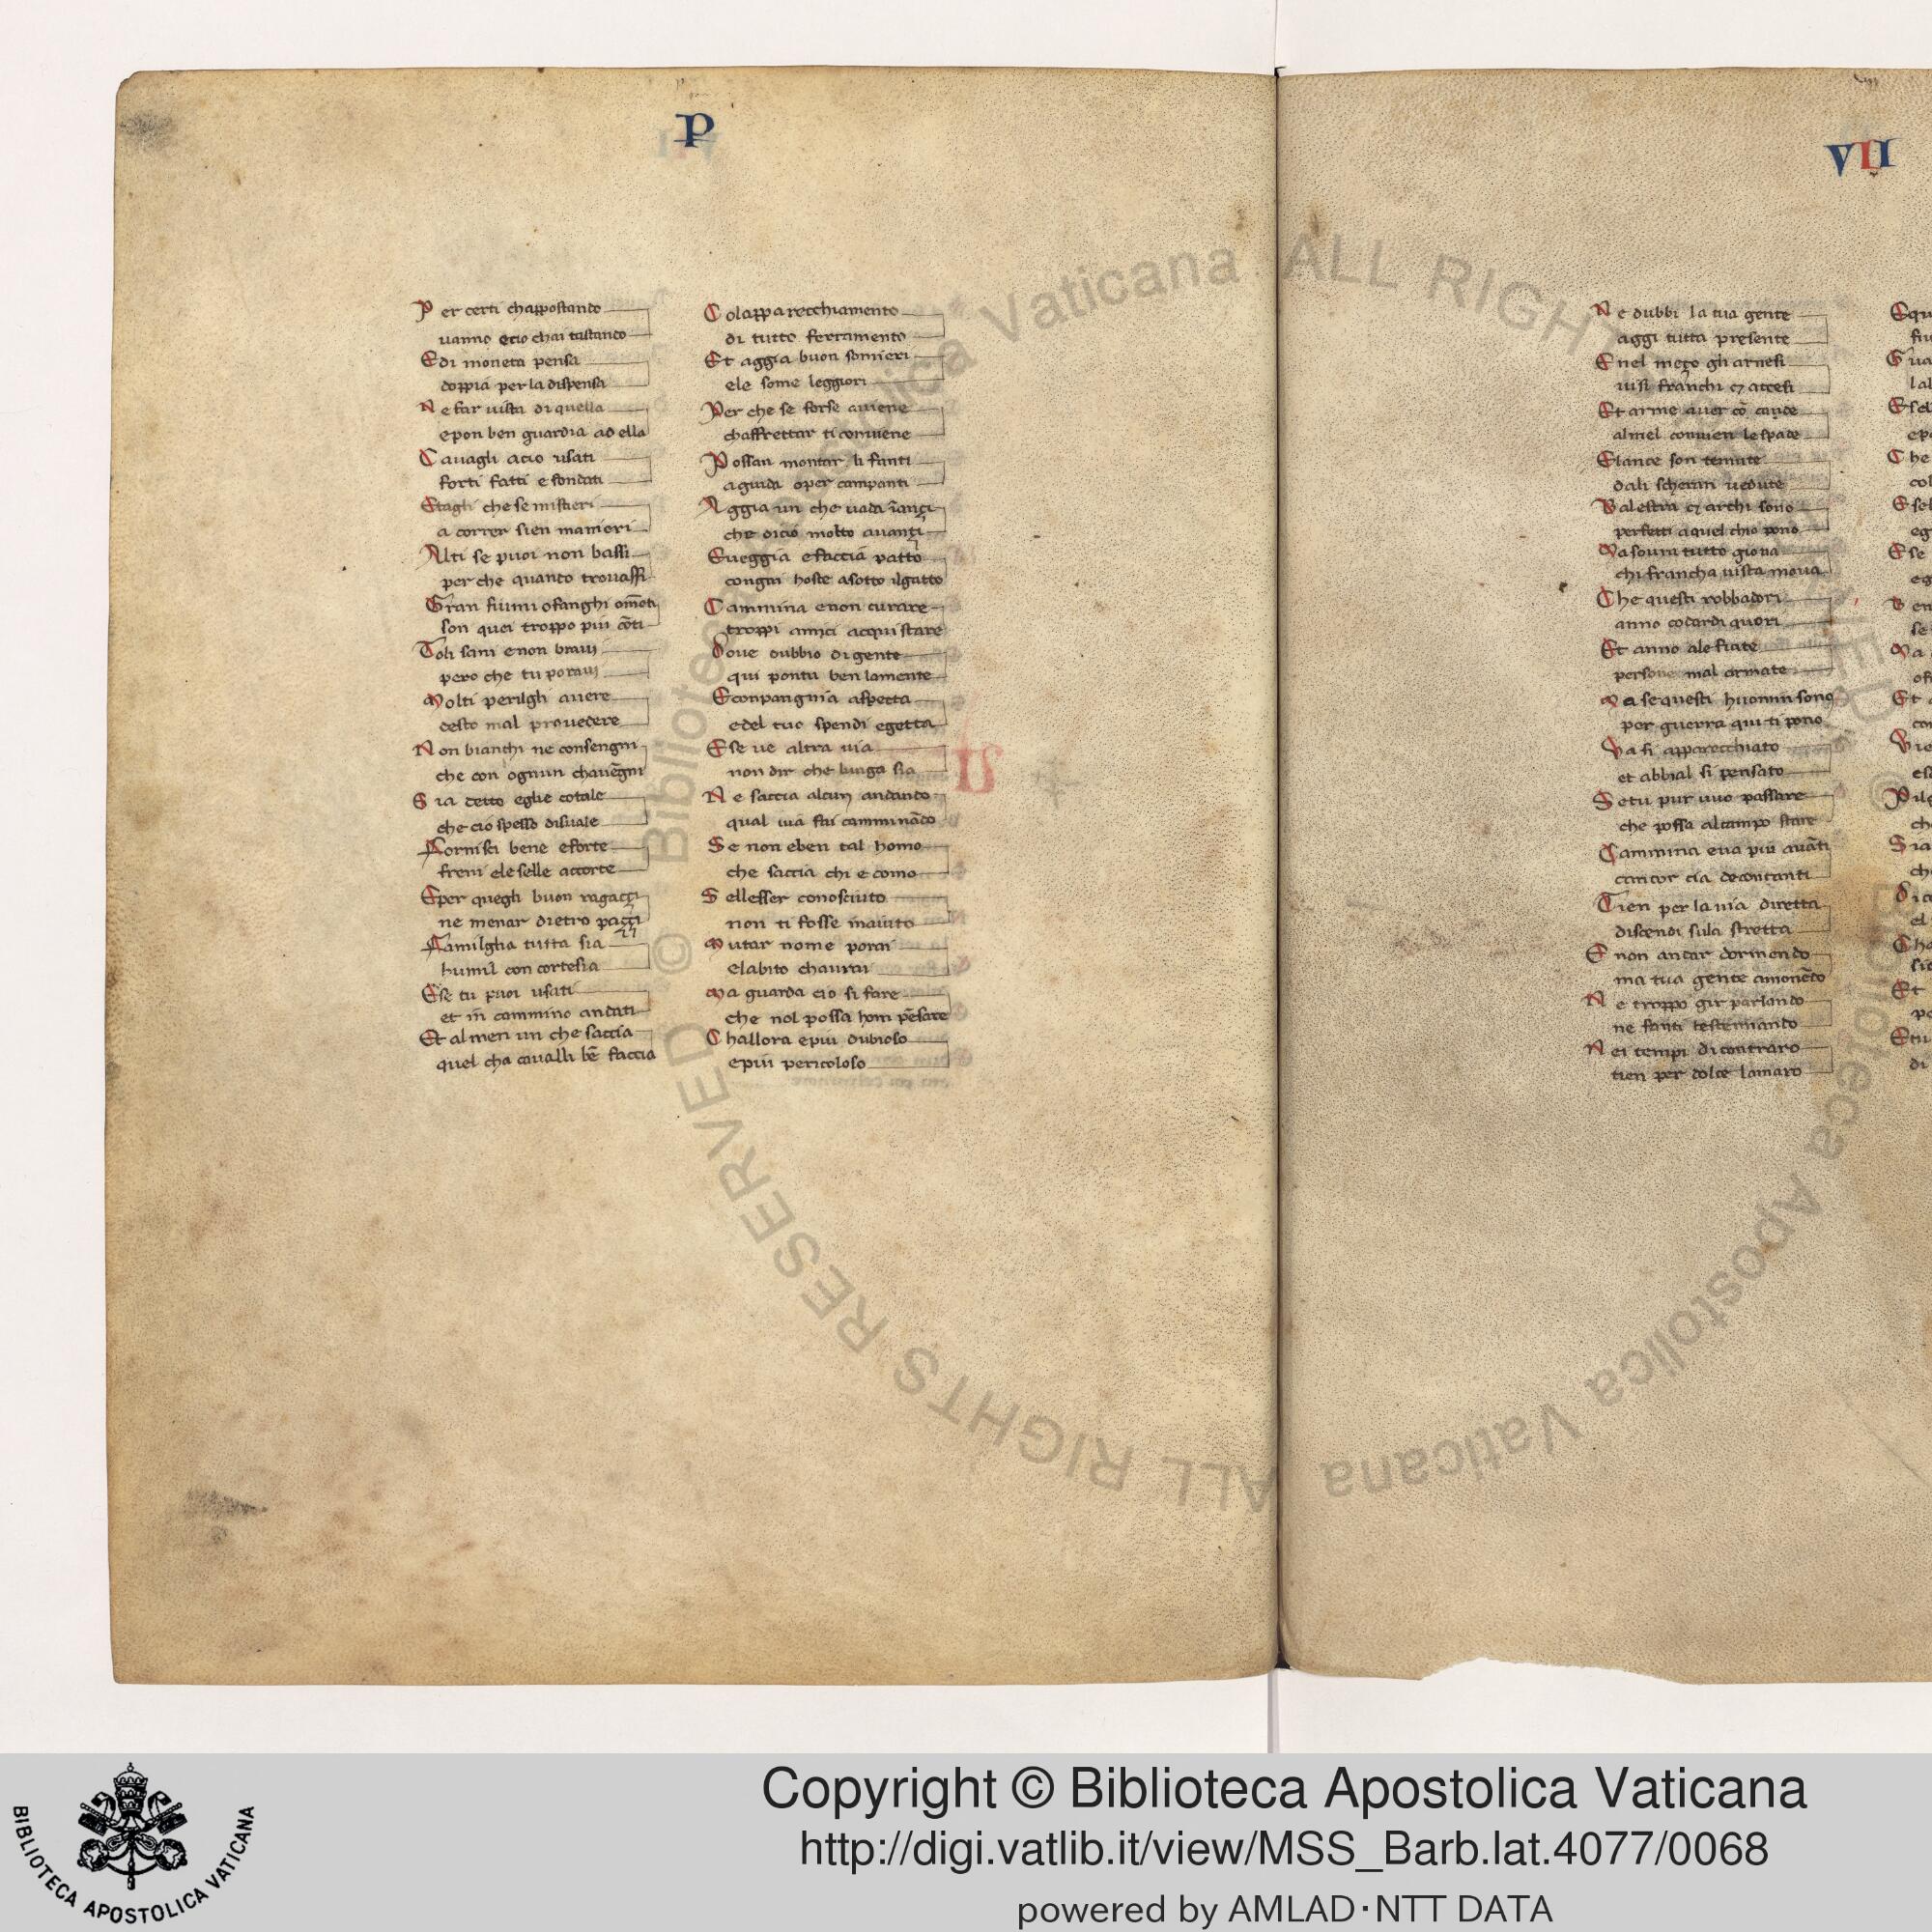 P
P er certi chappostando
uanno ecio chai tastando
E di moneta pensa
doppia per la dispensa
N e far uista di quella
epon ben guardia ad ella
C auagli acio usati
forti fatti e fondati
E tagli che se mistieri
a correr sien manieri
A lti se puoi non bassi
per che quanto trouassi
G ran fiumi ofanghi omōti
son quei troppo piu cōti
T oli sani enon braui
pero che tu poraui
M olti perilgli auere
desto mal prouedere
N on bianchi ne consengni
che con ognun chauēgni
S ia detto eglie cotale
che cio spesso disuale
F ornisci bene eforte
freni ele selle accorte
E per quegli buon ragaççi
ne menar dietro paççi
F amilglia tutta sia
humil con cortesia
E se tu puoi usati
et in cammino andati
E t almen un che saccia
quel cha caualli bē faccia
C olapparecchiamento
di tutto ferramento
E t aggia buon somieri
ele some leggiori
P er che se forse auiene
chaffrettar ti conuiene
P ossan montar li fanti
aguida oper campanti
A ggia un che uada inançi
che dicio molto auançi
E ueggia efaccia patto
congni hoste asotto ilgatto
C ammina enon curare
troppi amici acquistare
D oue dubbio di gente
qui pontu ben lamente
E conpangnia aspetta
edel tuo spendi egetta
E se ue altra uia
non dir che lunga sia
N e saccia alcun andando
qual uia fai camminādo
S e non eben tal homo
che saccia chi e como
S ellesser conosciuto
non ti fosse inaiuto
M utar nome porai
elabito chaurai
M a guarda cio si fare
che nol possa hom pēsare
C hallora epiu dubioso
epiu pericoloso
VII
N e dubbi la tua gente
aggi tutta presente
E nel meço gli arnesi
uisi franchi et accesi
E t arme auer cō caude
almel conuien le spade
E lance son temute
dali scheran uedute
B alestra et archi sono
perfetti aquel chio pono
M a soura tutto gioua
chi francha uista moua
C he questi robbadori
anno codardi quori
E t anno ale fiate
persone mal armate
M a se questi huomin sono
por guerra qui ti pono
V a si apparecchiato
et abbial si pensato
S etu pur uuo passare
che possa alcampo stare
C ammina eua piu auāti
cantor cia decontanti
T ien per la uia diretta
discendi sula stretta
E non andar dormendo
ma tua gente amonēdo
N e troppo gir parlando
ne fanti testennando
N ei tempi di contraro
tien per dolce lamaro
Copyright © Biblioteca Apostolica Vaticana
http://digi.vatlib.it/view/MSS_Barb.lat.4077/0068
powered by AMLAD·NTT DATA
BIBLIOTECA APOSTOLICA VATICANA